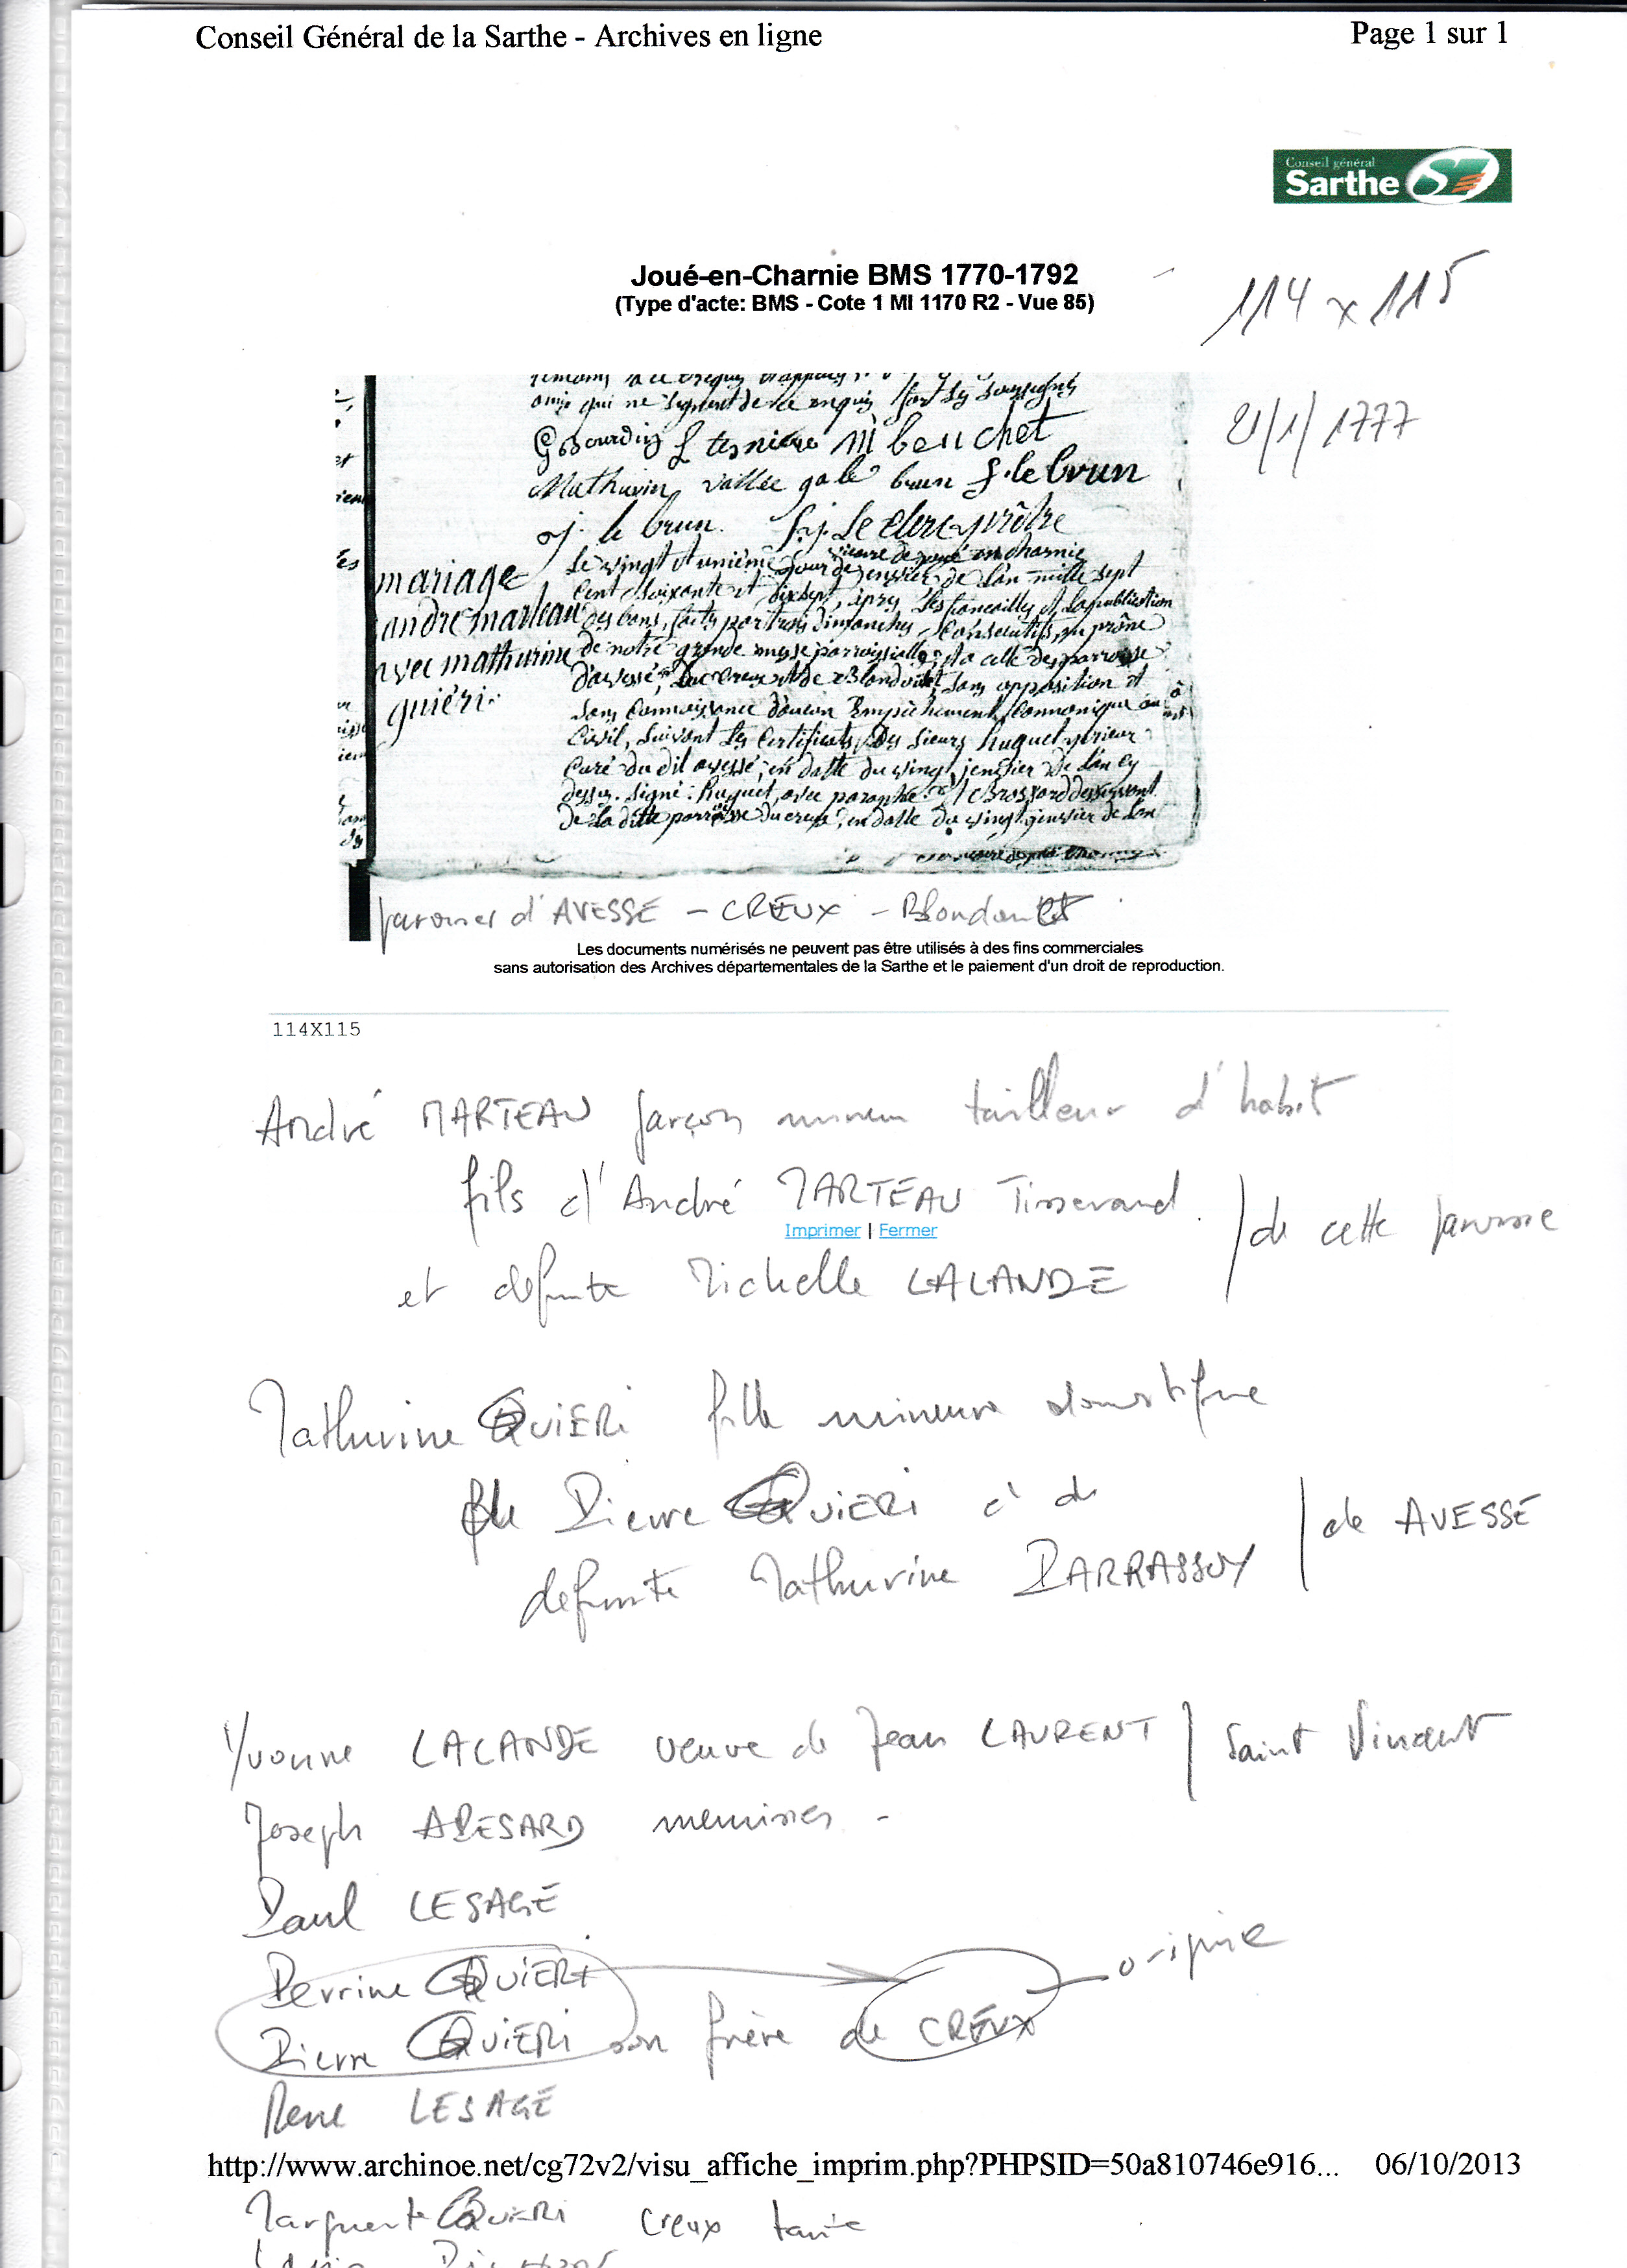 Conseil Général de la Sarthe - Archives en ligne Page 1 sur 1
Conseil général
Sarthe
Joué-en-Charnie BMS 1770-1792
(Type d'acte: BMS - Cote 1 MI 1170 R2 - Vue 85)
114 x 115
21/1/1777
qui ne
f tesniere M beuchet
Mathurin vallée gale brun f. le brun
j. le brun. f. j. Le clerc prêtre
Le vingt et unième jour de janvier de l'an mille sept
mariage
Cent soixante et dixsept, apres les fiancailles et la publication
andré marteau
des bans, faits par trois dimanches consécutifs, au prône
avec mathurine
de notre grande messe parroissialle, et a celle des parroisse
quiéri.
d'avessé, du Creux et de Blandouet, sans opposition et
sans connaissance d'aucun Empêchement Cannonique ou
Civil, suivant Les Certificats des sieurs huguet prieur
Curé du dit avessé, en datte du vingt janvier de l'an cy
dessus. signé: huguet, avec paraphe. et Brossard desservant
De la ditte parroisse du creux, en datte du vingt janvier de l'an
paroisses d'AVESSE - CREUX - Blandouet
Les documents numérisés ne peuvent pas être utilisés à des fins commerciales
sans autorisation des Archives départementales de la Sarthe et le paiement d'un droit de reproduction.
114X115
André MARTEAU garçon mineur tailleur d'habit
fils d'André MARTEAU Tisserand
Imprimer | Fermer
de cette paroisse
et defunte Michelle LALANDE
Mathurine QUIERI fille mineure domestique
fille Pierre QUIERI et de
de AVESSE
defunte Mathurine PARRASSUY
Yvonne LALANDE veuve de Jean LAURENT Saint Vincent
Joseph ABESARD menuisier -
Paul LESAGE
origine
Perrine QUIERI
Pierre QUIERI son frère de CREUX
René LESAGE
http://www.archinoe.net/cg72v2/visu_affiche_imprim.php?PHPSID=50a810746e916... 06/10/2013
Marguerite QUIERI Creux tante